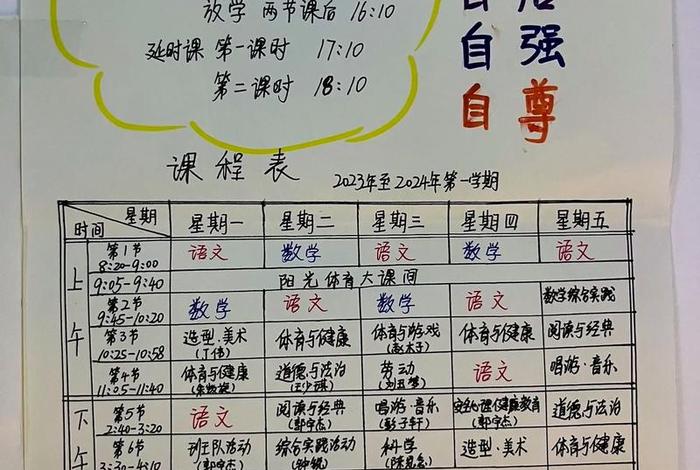 放学 两节课后 16:10
延时课 第一课时 17:10
第二课时 18:10
自强
自尊
课程表
2023年至2024年第一学期
星期 星期一 星期二 星期三 星期四 星期五
时间
上午
第1节 语文 数学 语文 数学 语文
8:20-9:00
9:05-9:40 阳光体育大课间
第2节 数学 语文 数学 语文 数学综合实践
9:45-10:20
第3节 造型·美术 体育与健康 体育与游戏 体育与健康 阅读与经典
10:25-10:58 (丁伟)
第4节 体育与健康 道德与法治 劳动 语文 唱游·音乐
11:05-11:40
下午
第5节 语文 阅读与经典 唱游·音乐 安全心理健康教育 道德与法治
2:40-3:20 (郭宇杰) (彭子轩) (郭宇杰)
第6节 班王队活动 综合实践活动 科学 造型·美术 体育与健康
3:30-4:10 (郭宇杰)